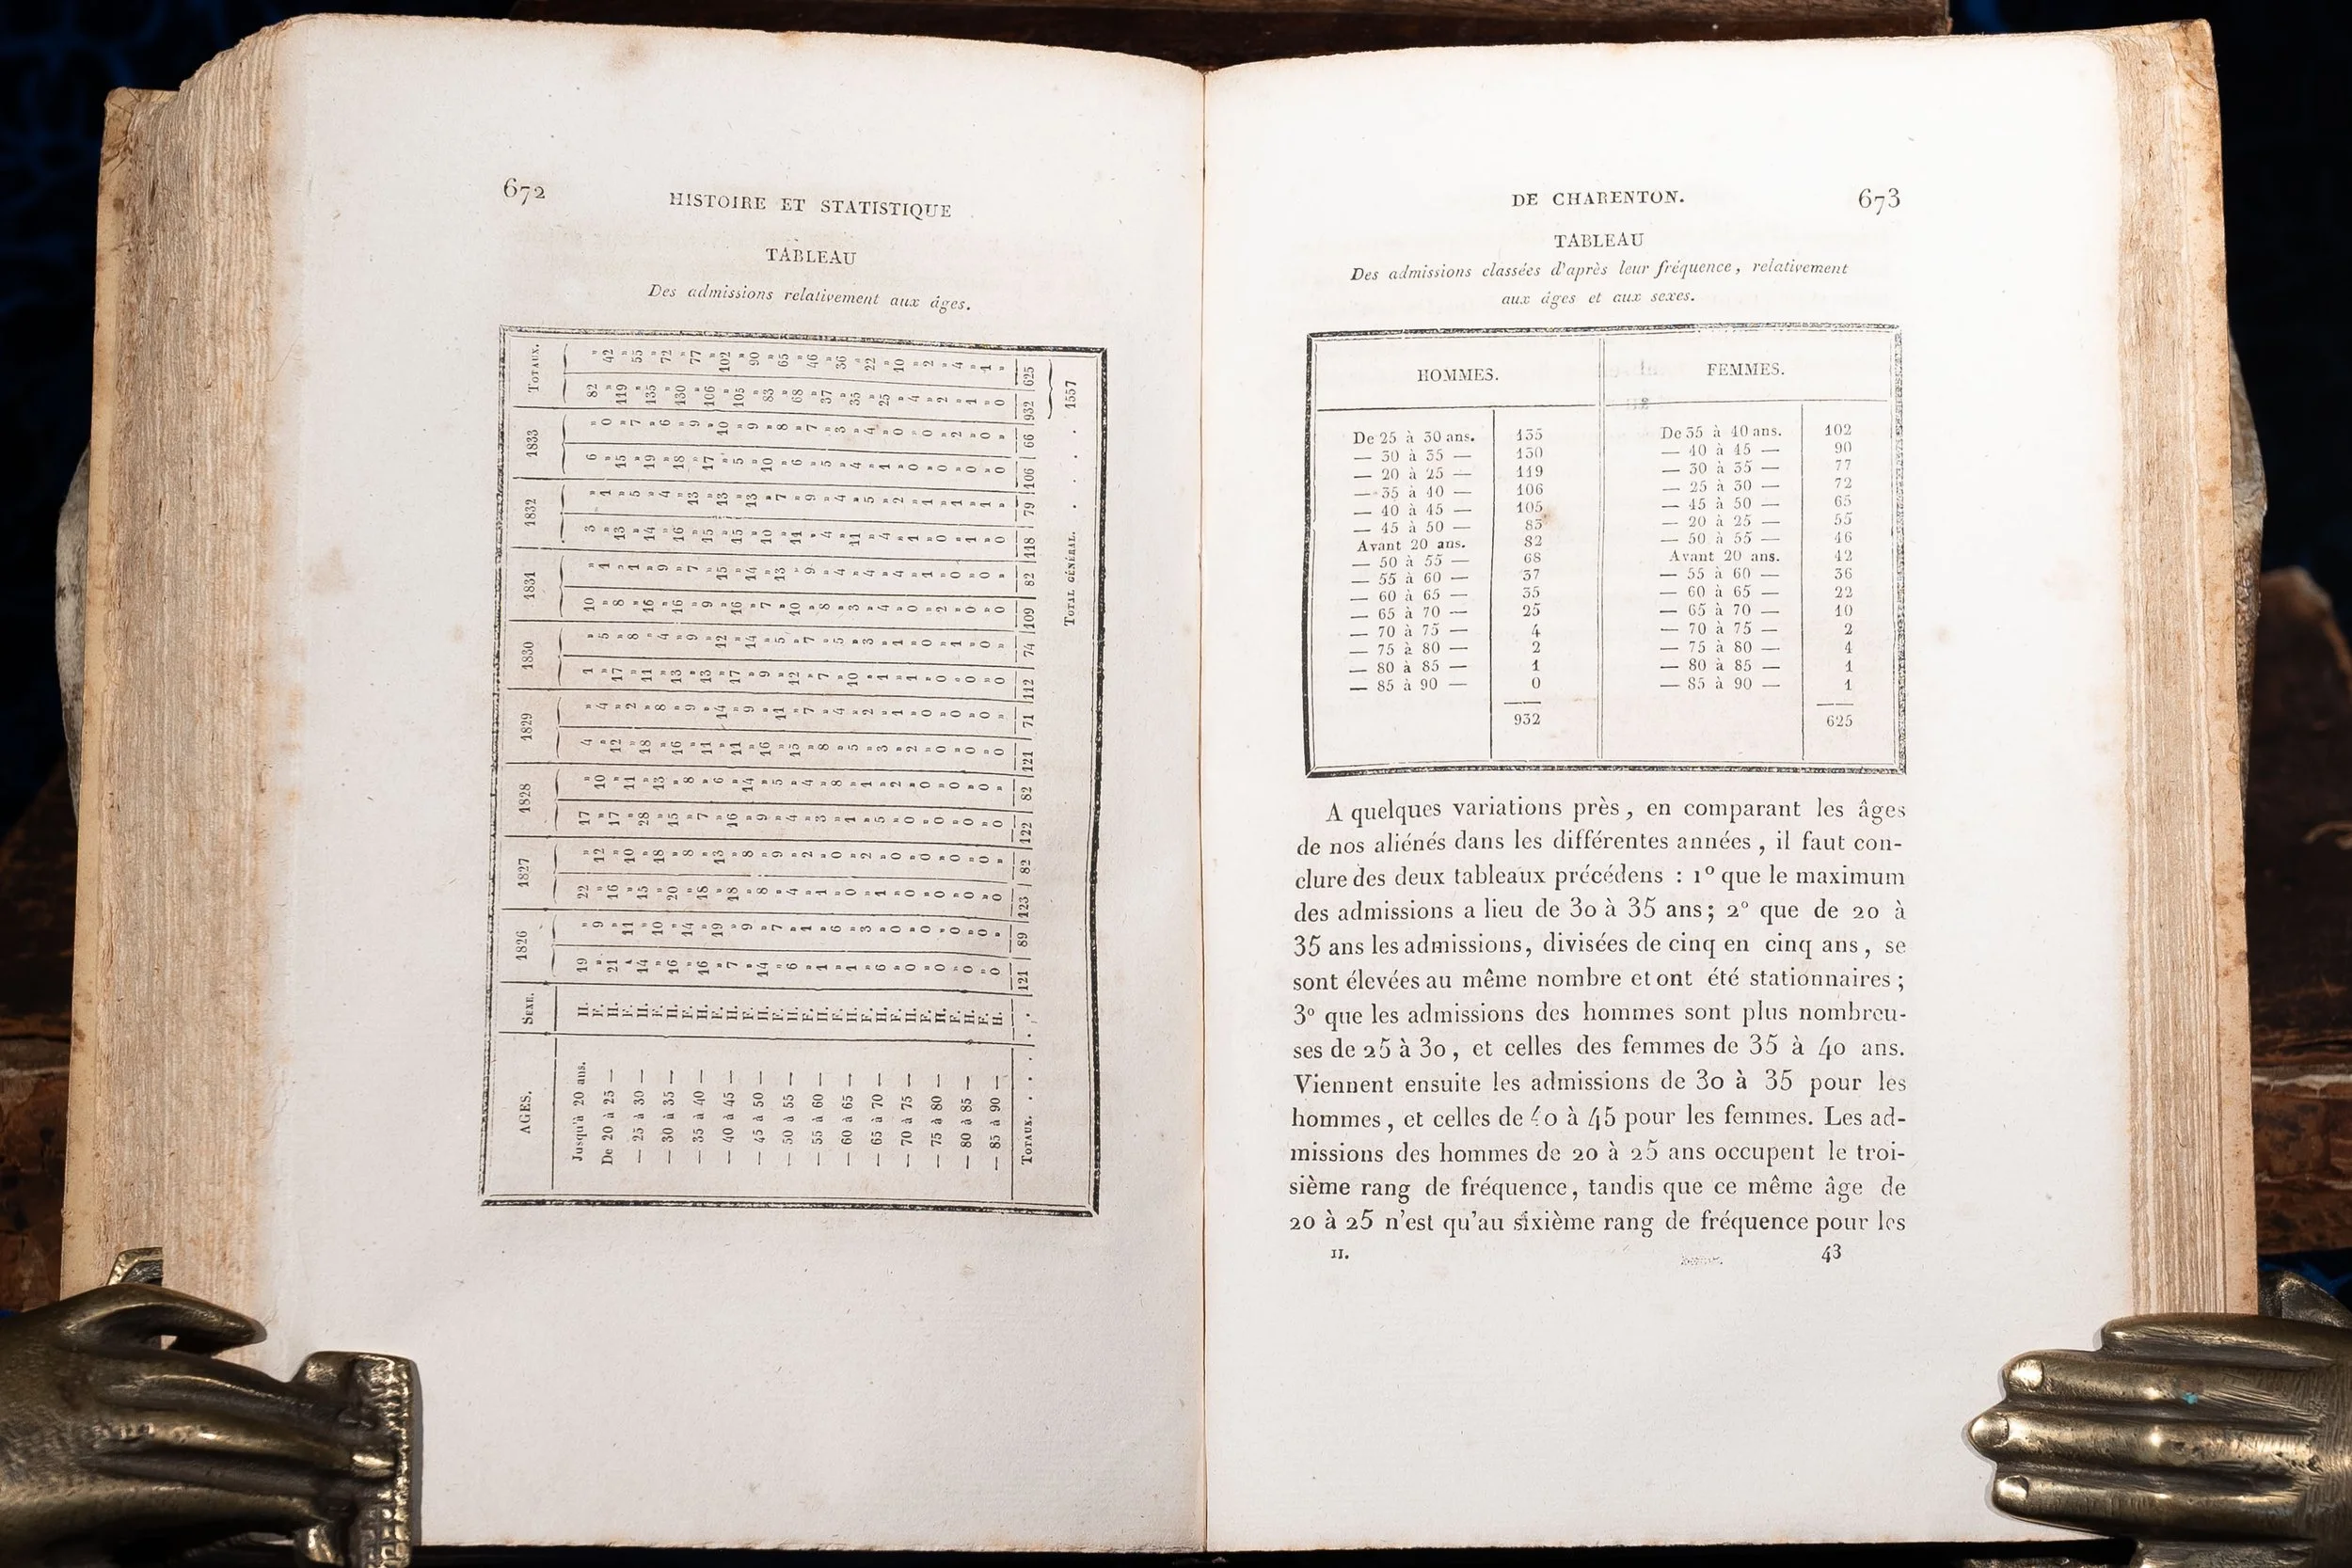 672
HISTOIRE ET STATISTIQUE
TABLEAU
Des admissions relativement aux âges.
AGES. SEXE. 1826 1827 1828 1829 1830 1831 1832 1833 TOTAUX.
Jusqu'à 20 ans. H. 19 » 22 » 17 » 4 » 1 » 10 » 3 » 6 » 82 »
F. » 9 » 12 » 10 » 4 » 5 » 1 » 1 » 0 » 42
De 20 à 25 — H. 21 » 16 » 17 » 12 » 17 » 8 » 13 » 15 » 119 »
F. » 11 » 10 » 11 » 2 » 8 » 1 » 5 » 7 » 55
— 25 à 30 — H. 14 » 15 » 28 » 18 » 11 » 16 » 14 » 19 » 135 »
F. » 10 » 18 » 13 » 8 » 4 » 9 » 4 » 6 » 72
— 30 à 35 — H. 16 » 20 » 15 » 16 » 13 » 16 » 16 » 18 » 130 »
F. » 14 » 8 » 8 » 9 » 9 » 7 » 13 » 9 » 77
— 35 à 40 — H. 16 » 18 » 7 » 11 » 13 » 9 » 15 » 17 » 106 »
F. » 19 » 13 » 6 » 14 » 12 » 15 » 13 » 10 » 102
— 40 à 45 — H. 7 » 18 » 16 » 11 » 17 » 16 » 15 » 5 » 105 »
F. » 9 » 8 » 14 » 9 » 14 » 14 » 13 » 9 » 90
— 45 à 50 — H. 14 » 8 » 9 » 16 » 9 » 7 » 10 » 10 » 83 »
F. » 7 » 9 » 5 » 11 » 5 » 13 » 7 » 8 » 65
— 50 à 55 — H. 6 » 4 » 4 » 15 » 12 » 10 » 11 » 6 » 68 »
F. » 1 » 2 » 4 » 7 » 7 » 9 » 9 » 7 » 46
— 55 à 60 — H. 1 » 1 » 3 » 8 » 7 » 8 » 4 » 5 » 37 »
F. » 6 » 0 » 8 » 4 » 5 » 4 » 4 » 3 » 36
— 60 à 65 — H. 1 » 0 » 1 » 5 » 10 » 3 » 11 » 4 » 35 »
F. » 3 » 2 » 1 » 2 » 3 » 4 » 5 » 4 » 22
— 65 à 70 — H. 6 » 1 » 5 » 3 » 1 » 4 » 4 » 1 » 25 »
F. » 0 » 0 » 2 » 1 » 1 » 4 » 2 » 0 » 10
— 70 à 75 — H. 0 » 0 » 0 » 2 » 1 » 0 » 1 » 0 » 4 »
F. » 0 » 0 » 0 » 0 » 0 » 1 » 1 » 0 » 2
— 75 à 80 — H. 0 » 0 » 0 » 0 » 0 » 2 » 0 » 0 » 2 »
F. » 0 » 0 » 0 » 0 » 1 » 0 » 1 » 2 » 4
— 80 à 85 — H. 0 » 0 » 0 » 0 » 0 » 0 » 1 » 0 » 1 »
F. » 0 » 0 » 0 » 0 » 0 » 0 » 1 » 0 » 1
— 85 à 90 — H. 0 » 0 » 0 » 0 » 0 » 0 » 0 » 0 » 0 »
TOTAUX. . . . . 121 89 123 82 122 82 121 71 112 74 109 82 118 79 106 66 932 625
TOTAL GÉNÉRAL. . . . 1557
DE CHARENTON.
673
TABLEAU
Des admissions classées d'après leur fréquence, relativement
aux âges et aux sexes.
HOMMES. FEMMES.
De 25 à 30 ans. 135 De 35 à 40 ans. 102
— 30 à 35 — 130 — 40 à 45 — 90
— 20 à 25 — 119 — 30 à 35 — 77
— 35 à 40 — 106 — 25 à 30 — 72
— 40 à 45 — 105 — 45 à 50 — 65
— 45 à 50 — 83 — 20 à 25 — 55
Avant 20 ans. 82 — 50 à 55 — 46
— 50 à 55 — 68 Avant 20 ans. 42
— 55 à 60 — 37 — 55 à 60 — 36
— 60 à 65 — 35 — 60 à 65 — 22
— 65 à 70 — 25 — 65 à 70 — 10
— 70 à 75 — 4 — 70 à 75 — 2
— 75 à 80 — 2 — 75 à 80 — 4
— 80 à 85 — 1 — 80 à 85 — 1
— 85 à 90 — 0 — 85 à 90 — 1
932 625
A quelques variations près, en comparant les âges
de nos aliénés dans les différentes années, il faut con-
clure des deux tableaux précédens : 1° que le maximum
des admissions a lieu de 30 à 35 ans; 2° que de 20 à
35 ans les admissions, divisées de cinq en cinq ans, se
sont élevées au même nombre et ont été stationnaires;
3° que les admissions des hommes sont plus nombreu-
ses de 25 à 30, et celles des femmes de 35 à 40 ans.
Viennent ensuite les admissions de 30 à 35 pour les
hommes, et celles de 40 à 45 pour les femmes. Les ad-
missions des hommes de 20 à 25 ans occupent le troi-
sième rang de fréquence, tandis que ce même âge de
20 à 25 n'est qu'au sixième rang de fréquence pour les
II. 43